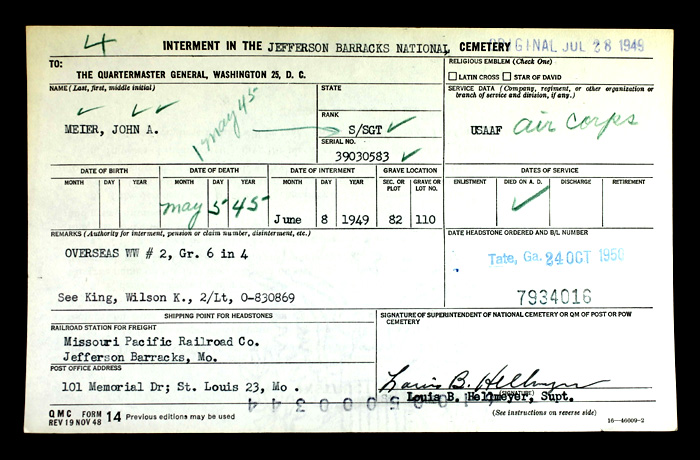 4 INTERMENT IN THE JEFFERSON BARRACKS NATIONAL CEMETERY ORIGINAL JUL 28 1949
TO:
THE QUARTERMASTER GENERAL, WASHINGTON 25, D. C.
RELIGIOUS EMBLEM (Check One)
☐ LATIN CROSS ☐ STAR OF DAVID
NAME (Last, first, middle initial)
MEIER, JOHN A.
may 45
STATE
RANK
S/SGT
SERIAL NO.
39030583
SERVICE DATA (Company, regiment, or other organization or branch of service and division, if any.)
USAAF air corps
DATE OF BIRTH DATE OF DEATH DATE OF INTERMENT GRAVE LOCATION DATES OF SERVICE
MONTH DAY YEAR MONTH DAY YEAR MONTH DAY YEAR SEC. OR PLOT GRAVE OR LOT NO. ENLISTMENT DIED ON A. D. DISCHARGE RETIREMENT
may 5 45 June 8 1949 82 110 ✓
REMARKS (Authority for interment, pension or claim number, disinterment, etc.)
OVERSEAS WW # 2, Gr. 6 in 4
See King, Wilson K., 2/Lt, O-830869
DATE HEADSTONE ORDERED AND B/L NUMBER
Tate, Ga. 24 OCT 1950
7934016
SHIPPING POINT FOR HEADSTONES
RAILROAD STATION FOR FREIGHT
Missouri Pacific Railroad Co.
Jefferson Barracks, Mo.
POST OFFICE ADDRESS
101 Memorial Dr; St. Louis 23, Mo .
SIGNATURE OF SUPERINTENDENT OF NATIONAL CEMETERY OR QM OF POST OR POW CEMETERY
Louis B. Hellmeyer
(SIGNATURE)
Louis B. Hellmeyer, Supt.
(See instructions on reverse side)
QMC FORM 14 Previous editions may be used
REV 19 NOV 48
16—46009-2